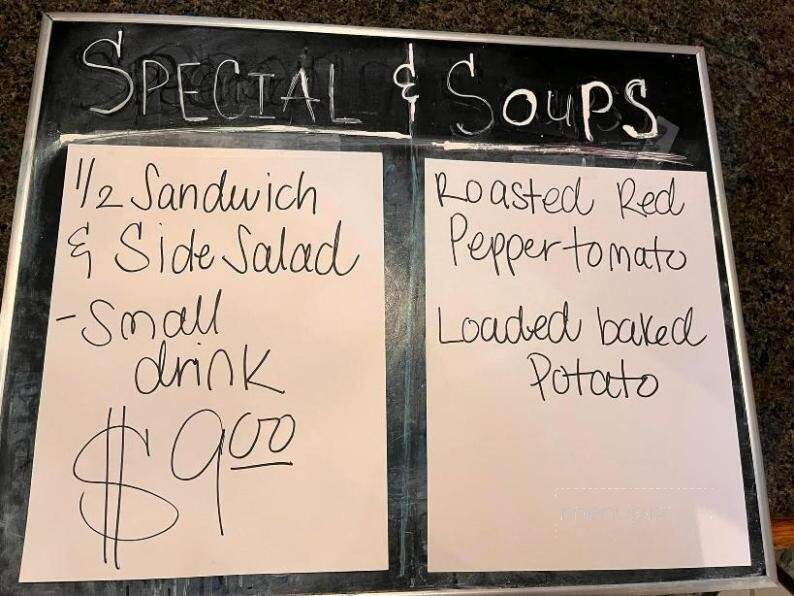 SPECIAL & SOUPS
1/2 Sandwich
& Side Salad
- Small
drink
$9.00
Roasted Red
Pepper tomato
Loaded baked
Potato